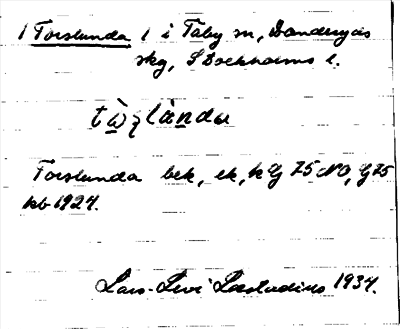 1 Torslunda l i Täby sn, Danderyds
skg, Stockholms l.
Torslunda bek, ek, kg 75 NO, G 75
kb 1924.
Lars-Levi Læstadius 1934.